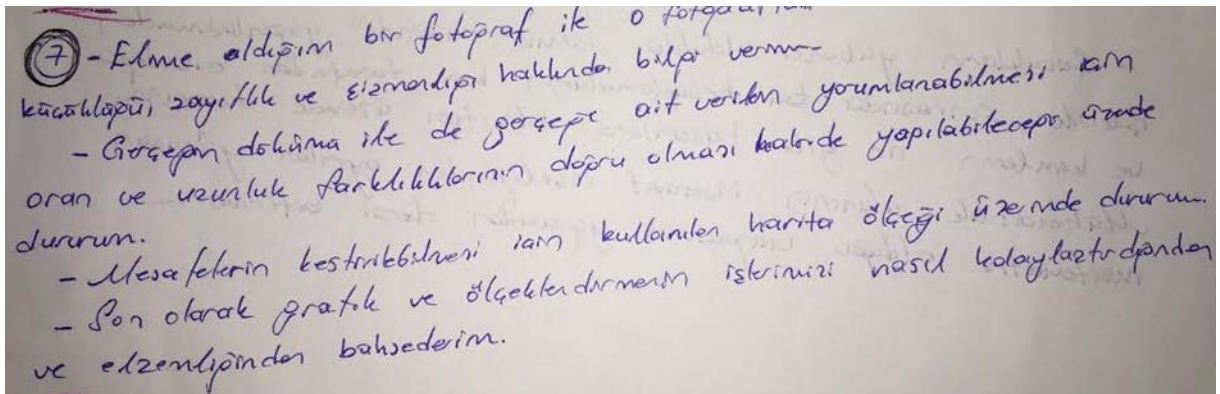 7 - Elime aldığım bir fotoğraf ile o
küçüklüğü, zayıflık ve hakkında bilgi
- Gerçeğin dokümü ile de gerçeğe ait verilen yorumlanabilmesi için
oran ve uzunluk farklılıklarının doğru olması halinde yapılabileceği üzede
dururum.
- Mesafelerin kestirilebilmesi için kullanılan harita ölçeği üzerinde dururum.
- Son olarak grafik ve ölçeklendirmenin işlerimizi nasıl kolaylaştırdığından
ve elzemliğinden bahsederim.